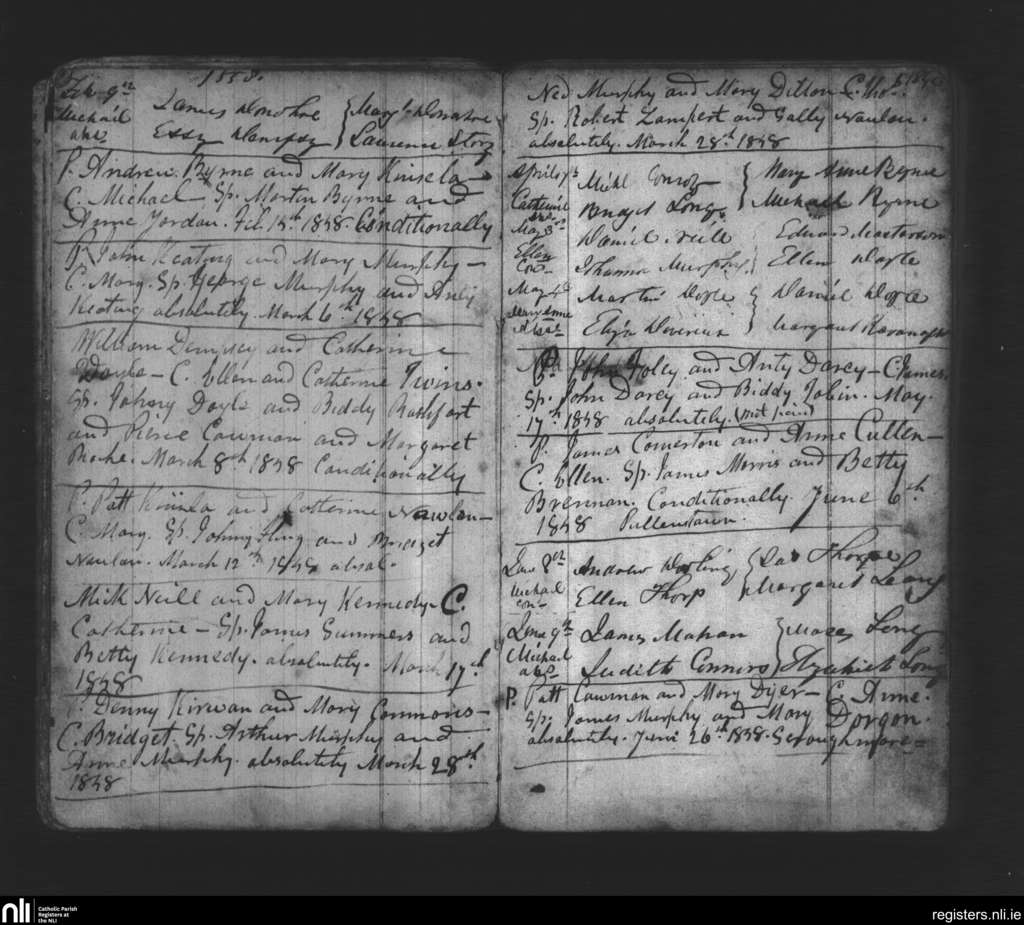 1838.
Feb. 9th
Michael James Donohoe } Mary Donohoe
abs. Essy Dempsy } Lawrence Story
P. Andrew Byrne and Mary Kinsela
C. Michael Sp. Martin Byrne and
Anne Jordan. Feb 15th 1838. Conditionally
P. John Keating and Mary Murphy —
C. Mary. Sp. George Murphy and
Keating absolutely. March 6th 1838
William Dempsey and Catherine
Doyle — C. Ellen and Catherine Twins.
Sp. Johny Doyle and Biddy Rashfort
and Pierce Cawman and Margaret
Roche. March 8th 1838 Conditionally
P. Patt Kinsela and Catherine Nawlan —
C. Mary. Sp. Johny and Bridget
Nawlan. March 12th 1838 absol.
Mick Neill and Mary Kennedy — C.
Catherine — Sp. James Summers and
Betty Kennedy. absolutely. March 17th
1838
P. Denny Kirwan and Mary Commons —
C. Bridget Sp. Arthur Murphy and
Anne Murphy. absolutely March 28th
1838
Ned Murphy and Mary Dillon C. Thos.
Sp. Robert Lampert and Sally Nawlan.
absolutely. March 28th 1838
April
Michl Conroy } Mary Anne Byrne
Catherine Bridget Long } Michael Byrne
May 3rd Daniel Neile Edward Masterson
Ellen Con. Johanna Murphy Ellen Doyle
May Martin Doyle } Daniel Doyle
Mary Anne Abs. Eliza Devereux } Margaret Kavanagh
P. John Foley and Anty Darcy — C. James.
Sp. John Darcy and Biddy Tobin. May.
17th 1838 absolutely. (not paid)
P. James Comerton and Anne Cullen —
C. Ellen. Sp. James Morris and Betty
Brennan. Conditionally. June 6th
1838
June 8th Andrew Darling } Thorpe
Michael con. Ellen Thorp } Margaret Leary
June 9th James Mahan } Moses Long
Michael abs. Judith Connors } Elizabeth Long
P. Patt Cawman and Mary Dyer — C. Anne.
Sp. James Murphy and Mary Dorgon.
absolutely. June 26th 1838. Scroughmore —
nli Catholic Parish
Registers at
the NLI
registers.nli.ie